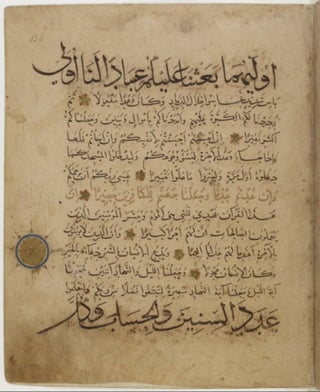 اوليهما بعثنا عليكم عبادا لنا اولى
باس شديد فجاسوا خلال الديار وكان وعدا مفعولا ثم
رددنا لكم الكرة عليهم وامددناكم باموال وبنين وجعلناكم
اكثر نفيرا ان احسنتم احسنتم لانفسكم وان اساتم فلها
فاذا جاء وعد الاخرة ليسوؤا وجوهكم وليدخلوا المسجد كما
دخلوه اول مرة وليتبروا ما علوا تتبيرا عسى ربكم ان يرحمكم
وان عدتم عدنا وجعلنا جهنم للكافرين حصيرا ان
هذا القران يهدي للتي هي اقوم ويبشر المؤمنين الذين
يعملون الصالحات ان لهم اجرا كبيرا وان الذين لا يؤمنون
بالاخرة اعتدنا لهم عذابا اليما ويدع الانسان بالشر دعاءه بالخير
وكان الانسان عجولا وجعلنا الليل والنهار ايتين فمحونا
اية الليل وجعلنا اية النهار مبصرة لتبتغوا فضلا من ربكم ولتعلموا
عدد السنين والحساب وكل